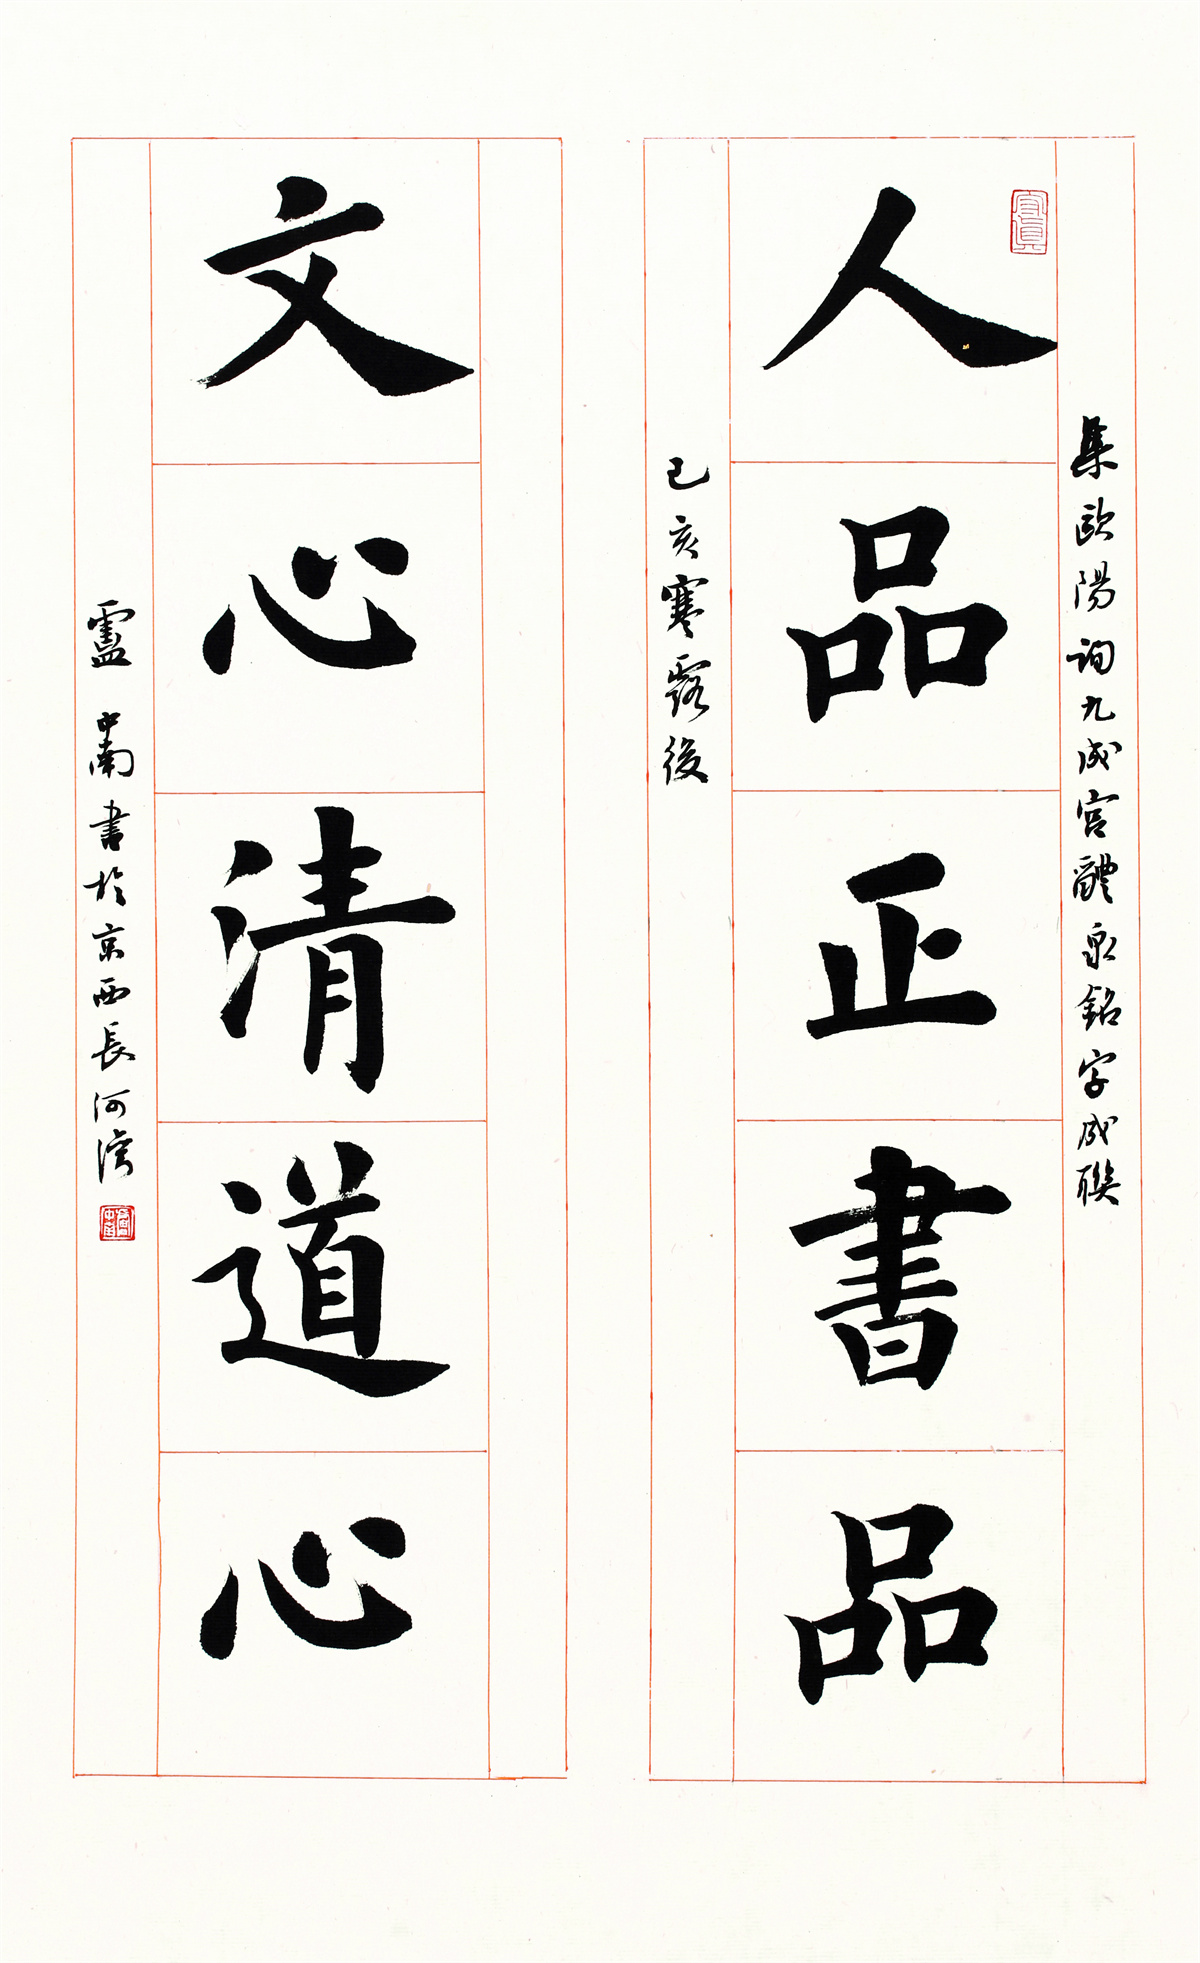 集歐陽詢九成宮醴泉銘字成聯
人品正書品
己亥寒露後
文心清道心
盧中南書於京西長河灣